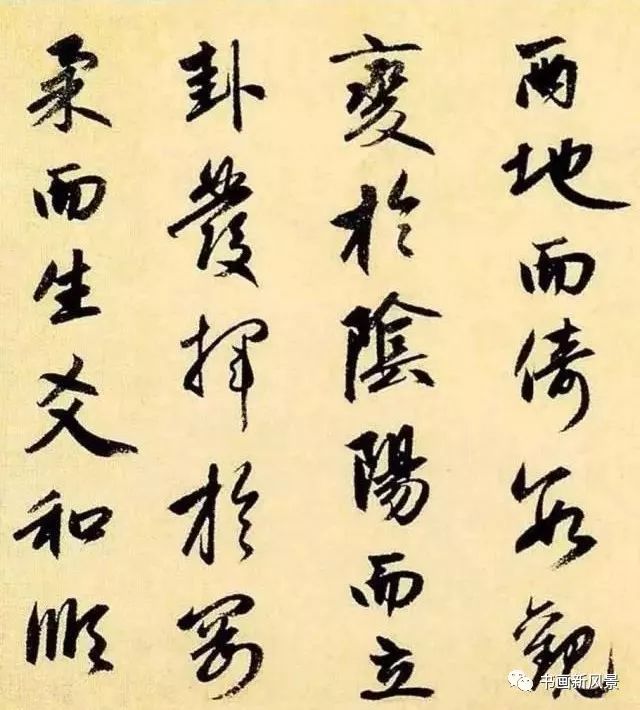 兩地而倚數觀
變於陰陽而立
卦發揮於剛
柔而生爻和順
书画新风景